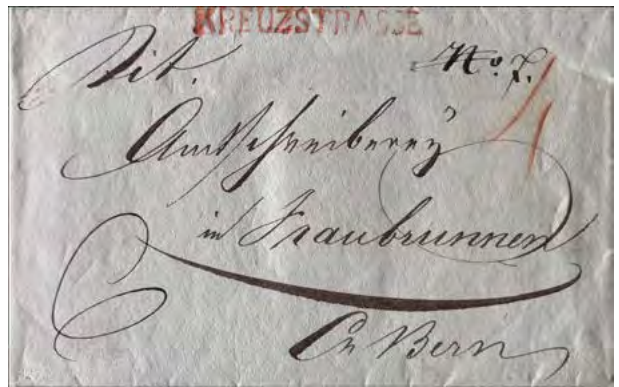 KREUZSTRASSE
Tit. No. 7.
Amtschreiberey
in Fraubrunnen
Ct Bern